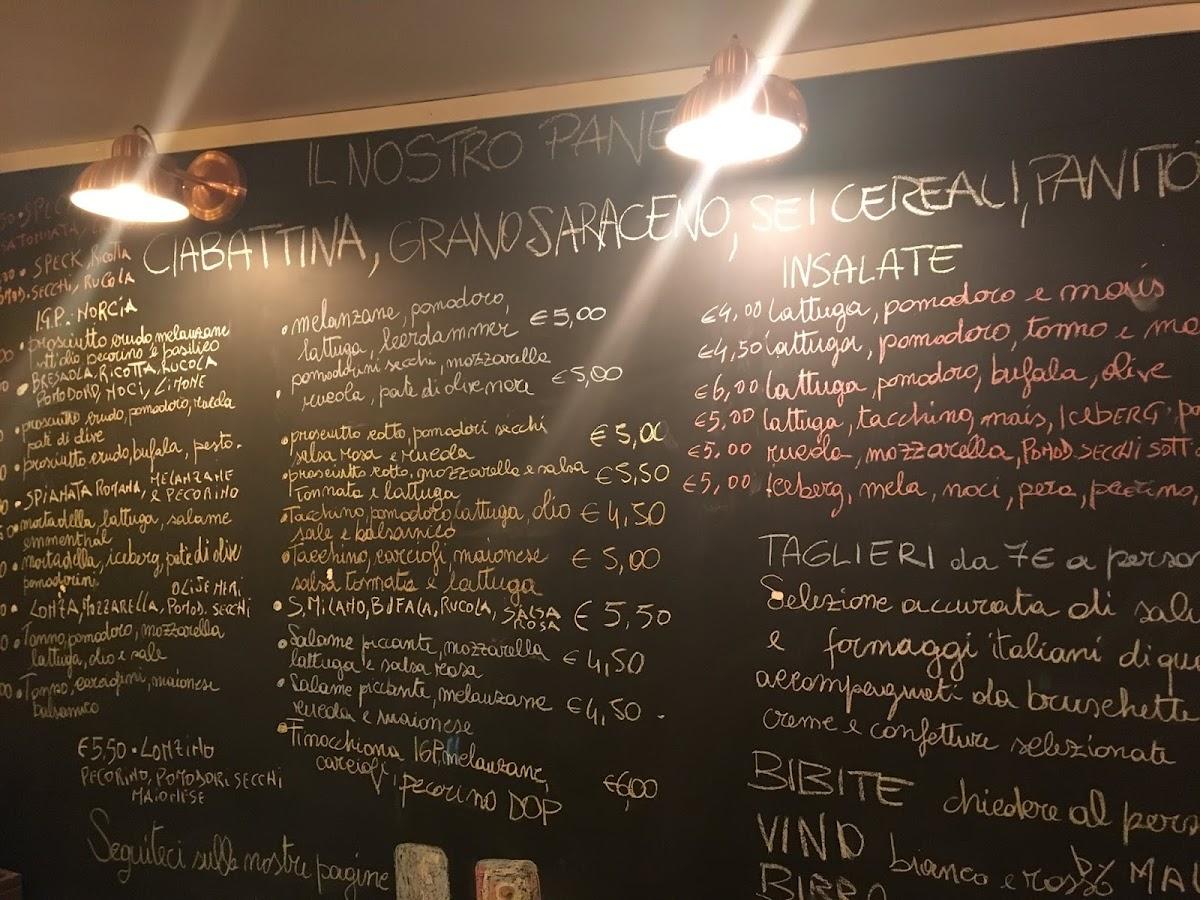 IL NOSTRO PANE
CIABATTINA, GRANO SARACENO, SEI CEREALI, PANITO
SPECK, RICOTTA
SECCHI, RUCOLA
IGP. NORCIA
prosciutto crudo, melanzane
sott'olio pecorino e basilico
BRESAOLA, RICOTTA, RUCOLA
POMODORO, NOCI, LIMONE
prosciutto crudo, pomodoro, rucola
patè di olive
prosciutto crudo, bufala, pesto.
SPIANATA ROMANA, MELANZANE
e PECORINO
mortadella, lattuga, salame
emmenthal
mortadella, iceberg, patè di olive
pomodorini
OLIVE NERI
LONZA, MOZZARELLA, POMOD. SECCHI
Tonno, pomodoro, mozzarella
lattuga, olio e sale
Tonno, carciofini, maionese
balsamico
€5,50 • LONZINO
PECORINO, POMODORI SECCHI
MAIONESE
Seguiteci sulle nostre pagine
• melanzane, pomodoro,
lattuga, leerdammer €5,00
• pomodorini secchi, mozzarella
rucola, patè di olive nere €5,00
• prosciutto cotto, pomodori secchi
salsa rosa e rucola €5,00
• prosciutto cotto, mozzarella e salsa
Tonnata e lattuga €5,50
• Tacchino, pomodoro lattuga, olio
sale e balsamico €4,50
• Tacchino, carciofi, maionese
salsa tonnata e lattuga €5,00
• S. MILANO, BUFALA, RUCOLA, SALSA
ROSA €5,50
• Salame piccante, mozzarella
lattuga e salsa rosa €4,50
• Salame piccante, melanzane
rucola e maionese €4,50.
• Finocchiona IGP, melanzane,
carciofi, pecorino DOP €6,00
INSALATE
€4,00 lattuga, pomodoro e mais
€4,50 lattuga, pomodoro, tonno e
€6,00 lattuga, pomodoro, bufala, olive
€5,00 lattuga, tacchino, mais, ICEBERG
€5,00 rucola, mozzarella, POMOD. SECCHI SOTT
€5,00 Iceberg, mela, noci, pera, pecorino
TAGLIERI da 7€ a perso
Selezione accurata di sal
e formaggi italiani di qua
accompagnati da bruschette
creme e confetture selezionate
BIBITE chiedere al pers
VINO bianco e rosso
BIRRA